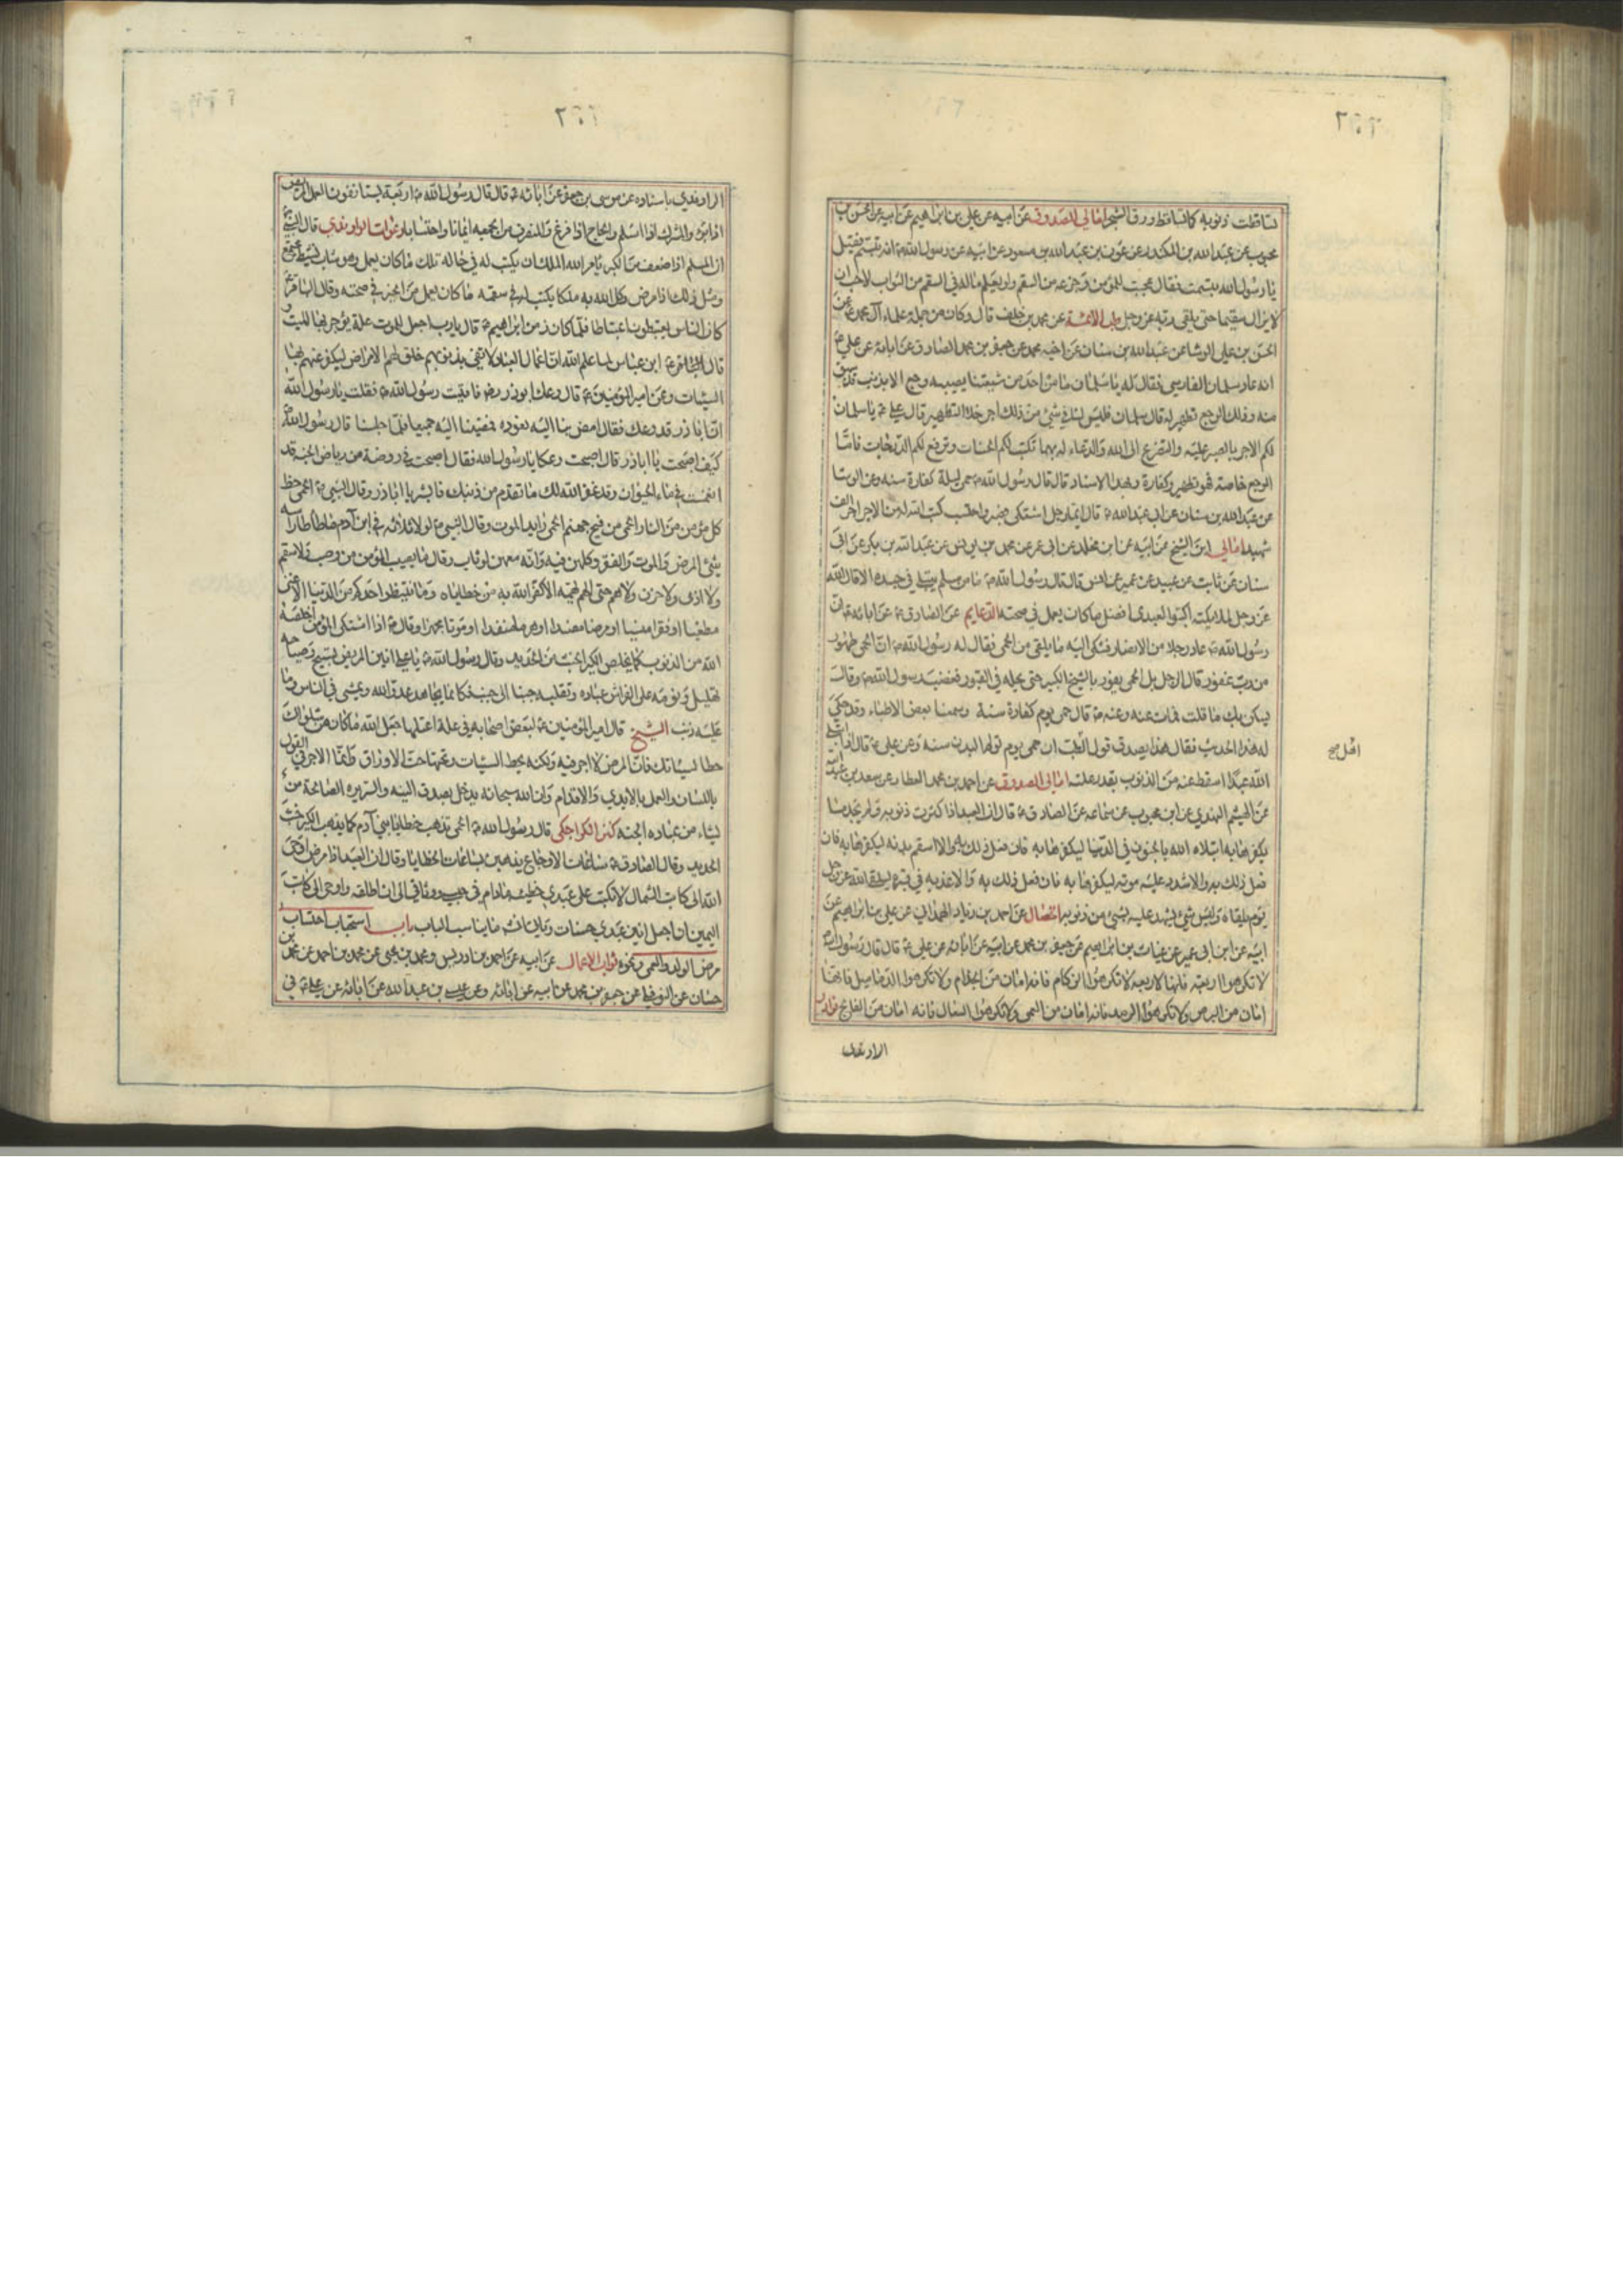 تساقطت ذنوبه كما تساقط ورق الشجر امالي الصدوق عن ابيه عن علي بن ابراهيم عن ابيه عن الحسن بن
محبوب عن عبد الله بن المنكدر عن عون بن عبد الله بن مسعود عن ابيه عن رسول الله ص انه تبسم فقيل
يا رسول الله تبسمت فقال عجبت للمؤمن وجزعه من السقم ولو يعلم ماله في السقم من الثواب لاحب ان
لا يزال سقيما حتى يلقى ربه عز وجل طب الائمة عن محمد بن خلف قال وكان من جملة علماء آل محمد عن
الحسن بن علي الوشا عن عبد الله بن سنان عن اخيه محمد عن جعفر بن محمد الصادق عن ابائه عن علي ع
انه عاد سلمان الفارسي فقال له يا سلمان ما من احد من شيعتنا يصيبه وجع الا بذنب قد سبق
منه وذلك الوجع تطهير له قال سلمان فليس لنا في شيء من ذلك اجر خلا التطهير قال علي ع يا سلمان
لكم الاجر بالصبر عليه والتضرع الى الله والدعاء له بهما تكتب لكم الحسنات وترفع لكم الدرجات فاما
الوجع خاصة فهو تطهير وكفارة وبهذا الاسناد قال قال رسول الله ص حمى ليلة كفارة سنة وعن الوشا
عن عبد الله بن سنان عن ابي عبد الله ع قال ايما رجل اشتكى فصبر واحتسب كتب الله له من الاجر اجر الف
شهيد امالي ابن الشيخ عن ابيه عن ابن مخلد عن ابي عمر عن محمد بن يونس عن عبد الله بن بكر عن ابي
سنان عن ثابت عن عبيد بن عمير عن انس قال قال رسول الله ص ما من مسلم يبتلى في جسده الا قال الله
عز وجل لملائكته اكتبوا لعبدي افضل ما كان يعمل في صحته الدعايم عن الصادق ع عن ابائه ع ان
رسول الله ص عاد رجلا من الانصار فشكى اليه ما يلقى من الحمى فقال له رسول الله ص ان الحمى طهور
من رب غفور قال الرجل بل الحمى يفور بالشيخ الكبير حتى يحله في القبور فغضب رسول الله ص وقال
ليكن بك ما قلت فمات عنه وعنه ص قال حمى يوم كفارة سنة وسمعنا بعض الاطباء وقد حكي
له هذا الحديث فقال هذا يصدق قول الطب ان حمى يوم تولم البدن سنة وعن علي ع قال اذا ابتلى
الله عبدا اسقط عنه من الذنوب بقدر علته امالي الصدوق عن احمد بن محمد العطار عن سعد بن عبد الله
عن الهيثم النهدي عن ابن محبوب عن سماعه عن الصادق ع قال ان العبد اذا كثرت ذنوبه ولم يجد ما
يكفرها به ابتلاه الله بالحزن في الدنيا ليكفرها به فان فعل ذلك به والا اسقم بدنه ليكفرها به فان
فعل ذلك به والا شدد عليه موته ليكفرها به فان فعل ذلك به والا عذبه في قبره ليلقى الله عز وجل
يوم يلقاه وليس شيء يشهد عليه بشيء من ذنوبه الخصال عن احمد بن زياد الهمداني عن علي بن ابراهيم عن
ابيه عن ابن ابي عمير عن غياث بن ابراهيم عن جعفر بن محمد عن ابيه عن ابائه عن علي ع قال قال رسول الله ص
لا تكرهوا اربعة فانها لاربعة لا تكرهوا الزكام فانه امان من الجذام ولا تكرهوا الدماميل فانها
امان من البرص ولا تكرهوا الرمد فانه امان من العمى ولا تكرهوا السعال فانه امان من الفالج نوادر
الراوندي
الراوندي باسناده عن موسى بن جعفر عن ابائه ع قال قال رسول الله ص اربعة يستانفون العمل المريض
اذا برء والمشرك اذا اسلم والحاج اذا فرغ والمنصرف من الجمعه ايمانا واحتسابا دعوات الراوندي قال النبي ص
ان المسلم اذا ضعف من الكبر يامر الله الملك ان يكتب له في حاله تلك ما كان يعمل وهو شاب نشيط مجتمع
ومثل ذلك اذا مرض وكل الله به ملكا يكتب له في سقمه ما كان يعمل من الخير في صحته وقال الباقر ع
كان الناس يعتبطون اعتباطا فلما كان زمن ابراهيم ع قال يا رب اجعل للموت علة يؤجر بها الميت
قال ابن عباس لما علم الله ان اعمال العباد لا تفي بذنوبهم خلق لهم الامراض ليكفر عنهم بها
السيئات وعن امير المؤمنين ع قال وعك ابوذر رض فاتيت رسول الله ص فقلت يا رسول الله
ان ابا ذر قد وعك فقال امض بنا اليه نعوده فمضينا اليه جميعا فلما جلسنا قال رسول الله ص
كيف اصبحت يا ابا ذر قال اصبحت وعكا يا رسول الله فقال اصبحت في روضة من رياض الجنة قد
انغمست في ماء الحيوان وقد غفر الله لك ما تقدم من ذنبك فابشر يا اباذر وقال النبي ص الحمى حظ
كل مؤمن من النار الحمى من فيح جهنم الحمى رايد الموت وقال النبي ص لولا ثلاثة في ابن آدم ما طاطا راسه
شيء المرض والموت والفقر وكلهن فيه وانه معهن لوثاب وقال ما يصيب المؤمن من وصب ولا سقم
ولا اذى ولا حزن ولا هم حتى الهم يهمه الا كفر الله به من خطاياه وما ينتظر احدكم من الدنيا الا غنى
مطغيا او فقرا منسيا او مرضا مفسدا او هرما مفندا او موتا مجهزا وقال ص اذا اشتكى المؤمن اخلصه
الله من الذنوب كما يخلص الكير الخبث من الحديد وقال رسول الله ص يا علي انين المريض تسبيح وصياحه
تهليل ونومه على الفراش عبادة وتقلبه جنبا الى جنب فكانما يجاهد عدو الله ويمشي في الناس وما
عليه ذنب الشيخ قال امير المؤمنين ع لبعض اصحابه في علة اعتلها جعل الله ما كان من شكواك
حطا لسيئاتك فان المرض لا اجر فيه ولكنه يحط السيئات ويحتها حت الاوراق وانما الاجر في القول
باللسان والعمل بالايدي والاقدام وان الله سبحانه يدخل بصدق النيه والسريره الصالحة من
يشاء من عباده الجنه كنز الكراجكي قال رسول الله ص الحمى تذهب خطايا بني آدم كما يذهب الكير خبث
الحديد وقال الصادق ع ساعات الاوجاع يذهبن بساعات الخطايا وقال ان العبد اذا مرض اوحى
الله الى كاتب الشمال لا تكتب على عبدي خطيئه مادام في حبسي ووثاقي الى ان اطلقه واوحى الى كاتب
اليمين ان اجعل انين عبدي حسنات وياتي ما يناسب الباب باب استحباب احتساب
مرض الولد والعمى ونحوه ثواب الاعمال عن ابيه عن احمد بن ادريس ومحمد بن يحيى عن محمد بن احمد عن محمد بن
حسان عن النوفلي عن جعفر بن محمد عن ابيه عن ابائه وعن عيسى بن عبد الله عن ابائه عن علي ع في